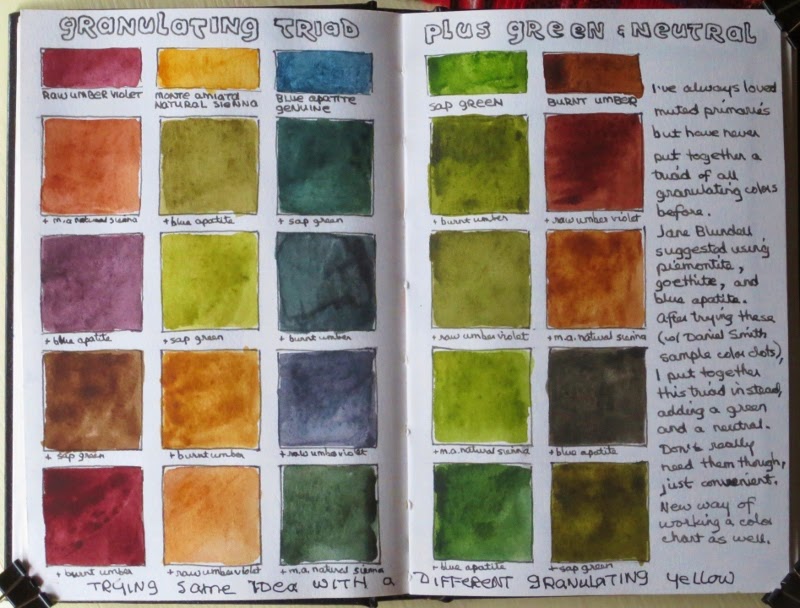 GRANULATING TRIAD
RAW UMBER VIOLET
MONTE AMIATA
NATURAL SIENNA
BLUE APATITE
GENUINE
+ m.a. natural sienna
+ blue apatite
+ sap green
+ blue apatite
+ sap green
+ burnt umber
+ sap green
+ burnt umber
+ raw umber violet
+ burnt umber
+ raw umber violet
+ m.a. natural sienna
PLUS GREEN & NEUTRAL
SAP GREEN
BURNT UMBER
+ burnt umber
+ raw umber violet
+ raw umber violet
+ m.a. natural sienna
+ m.a. natural sienna
+ blue apatite
+ blue apatite
+ sap green
I've always loved
muted primaries
but have never
put together a
triad of all
granulating colors
before.
Jane Blundell
suggested using
piemontite,
goethite, and
blue apatite.
After trying these
(w/ Daniel Smith
sample color dots),
I put together
this triad instead,
adding a green
and a neutral.
Don't really
need them though,
just convenient.
New way of
working a color
chart as well.
TRYING SAME IDEA WITH A DIFFERENT GRANULATING YELLOW